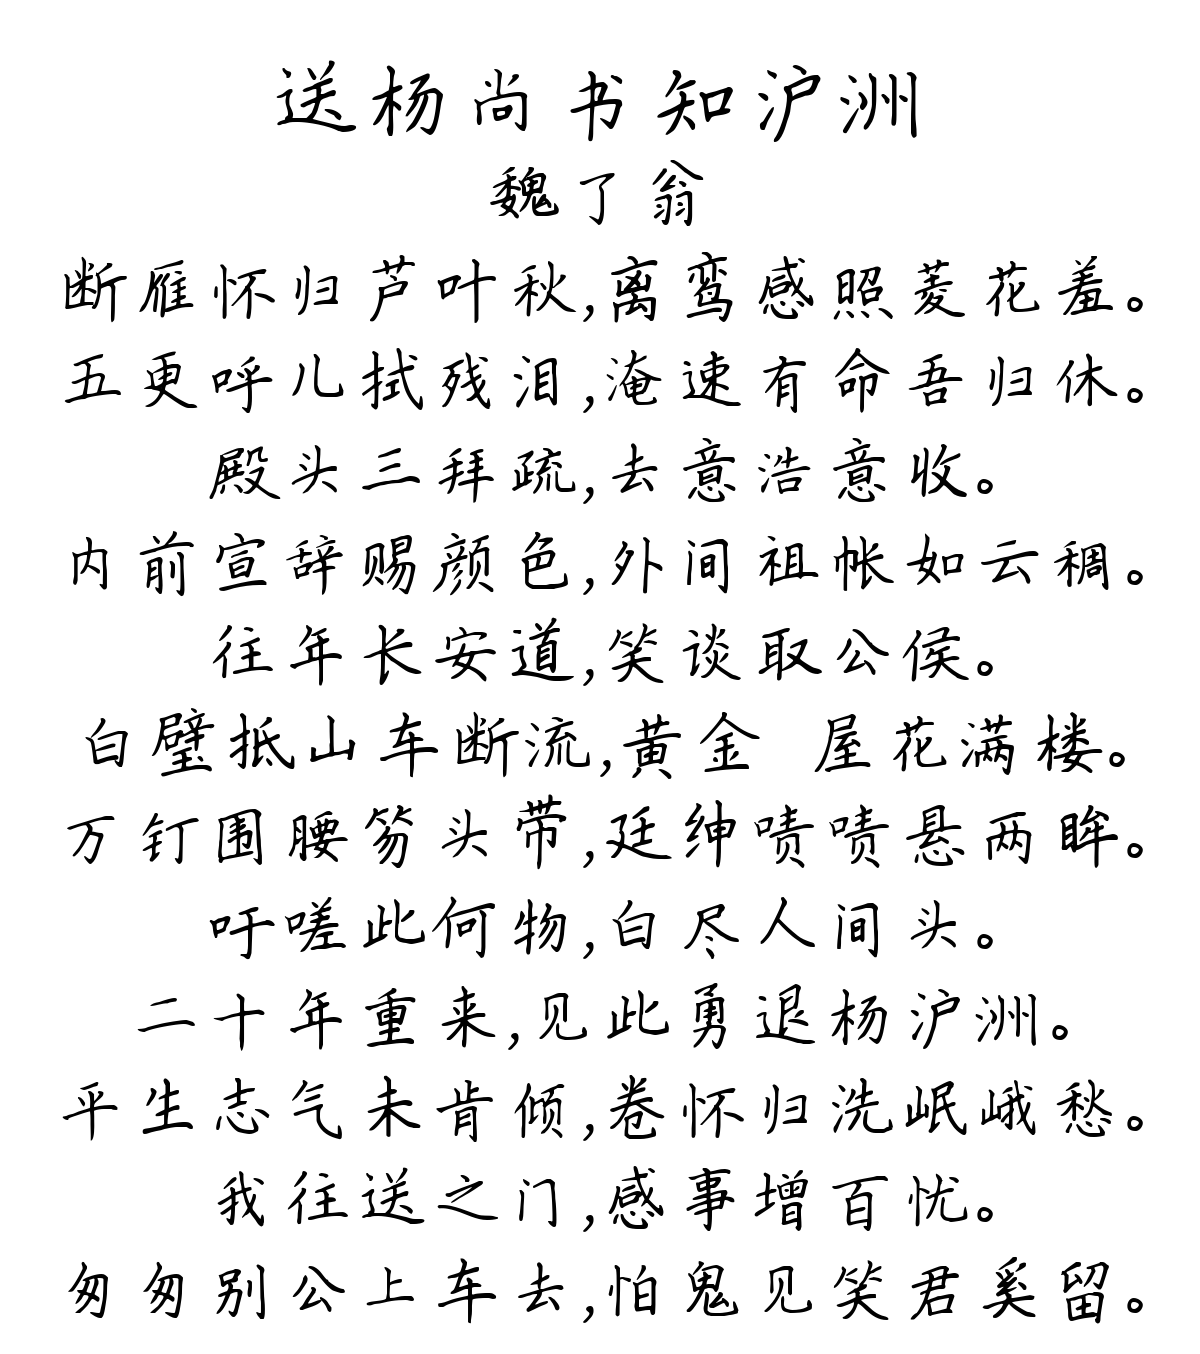 送杨尚书知沪洲
魏了翁
断雁怀归芦叶秋,离鸾感照菱花羞。
五更呼儿拭残泪,淹速有命吾归休。
殿头三拜疏,去意浩意收。
内前宣辞赐颜色,外间祖帐如云稠。
往年长安道,笑谈取公侯。
白璧抵山车断流,黄金 屋花满楼。
万钉围腰笏头带,廷绅啧啧悬两眸。
吁嗟此何物,白尽人间头。
二十年重来,见此勇退杨沪洲。
平生志气未肯倾,卷怀归洗岷峨愁。
我往送之门,感事增百忧。
匆匆别公上车去,怕鬼见笑君奚留。